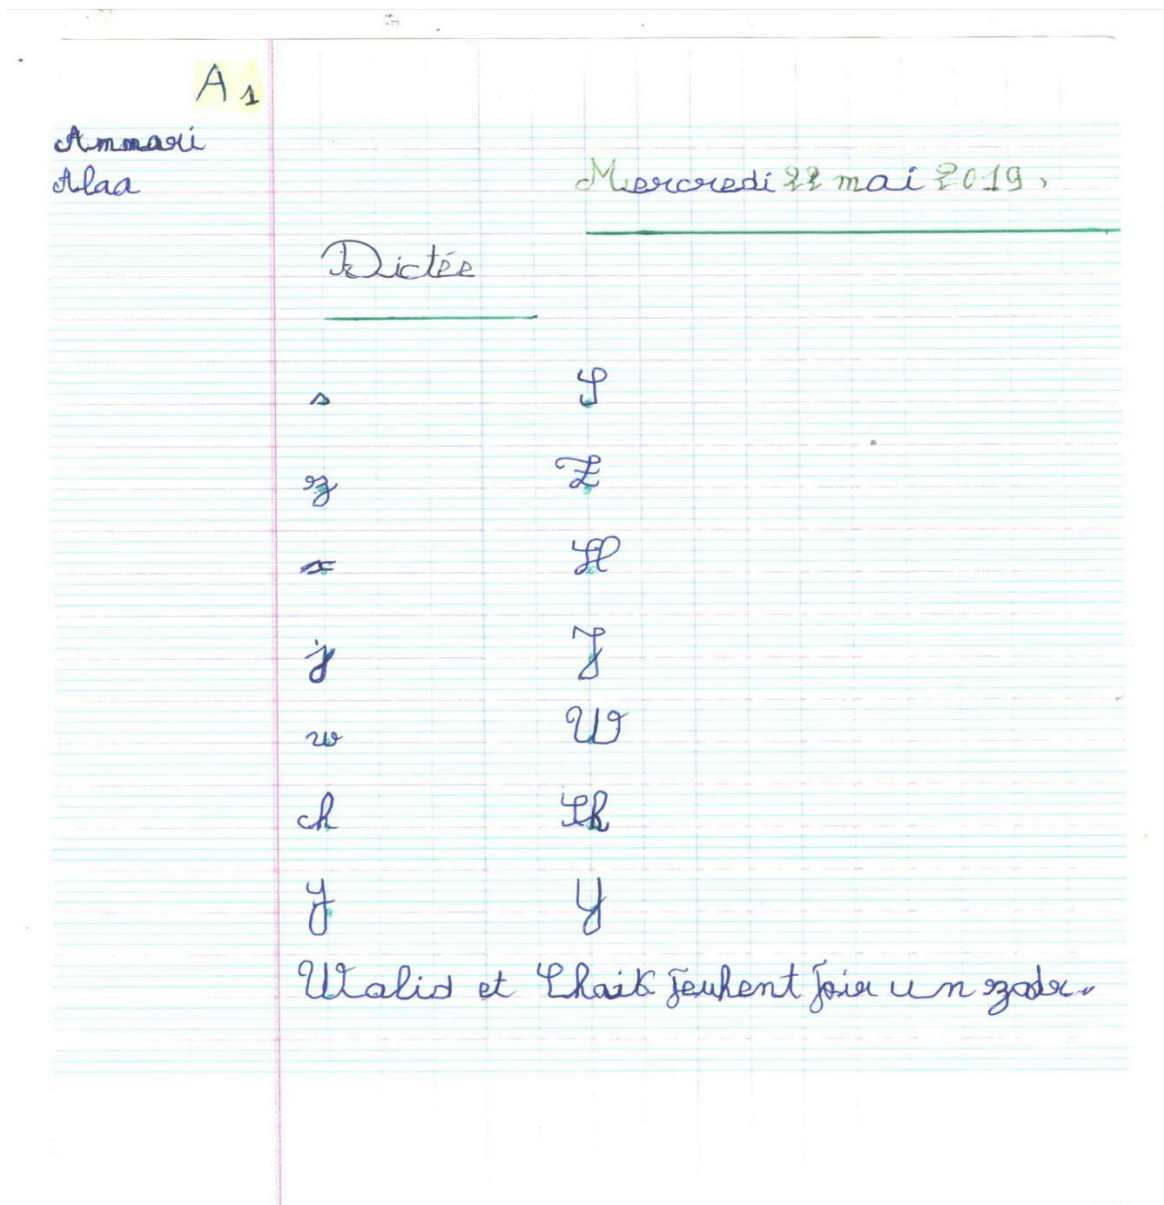 A1
Ammari
Alaa
Mercredi 22 mai 2019.
Dictée
s S
z Z
x H
j J
w W
ch Ch
y Y
Walid et Chaik jeuhent joir un zodr.